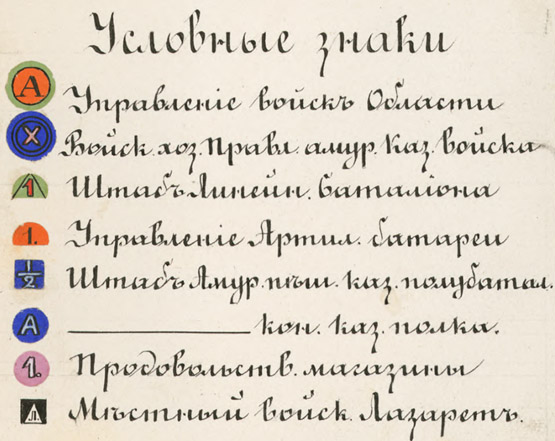 Условные знаки
А Управленіе войскъ Области
Х Войск. хоз. Правл. амур. Каз. войска
1 Штабъ Линейн. баталіона
1. Управленіе Артил. батареи
1/2 Штабъ Амур. пѣш. каз. полубатал.
А ———— кон. каз. полка.
1. Продовольств. магазины
Л. Мѣстный войск. Лазаретъ.